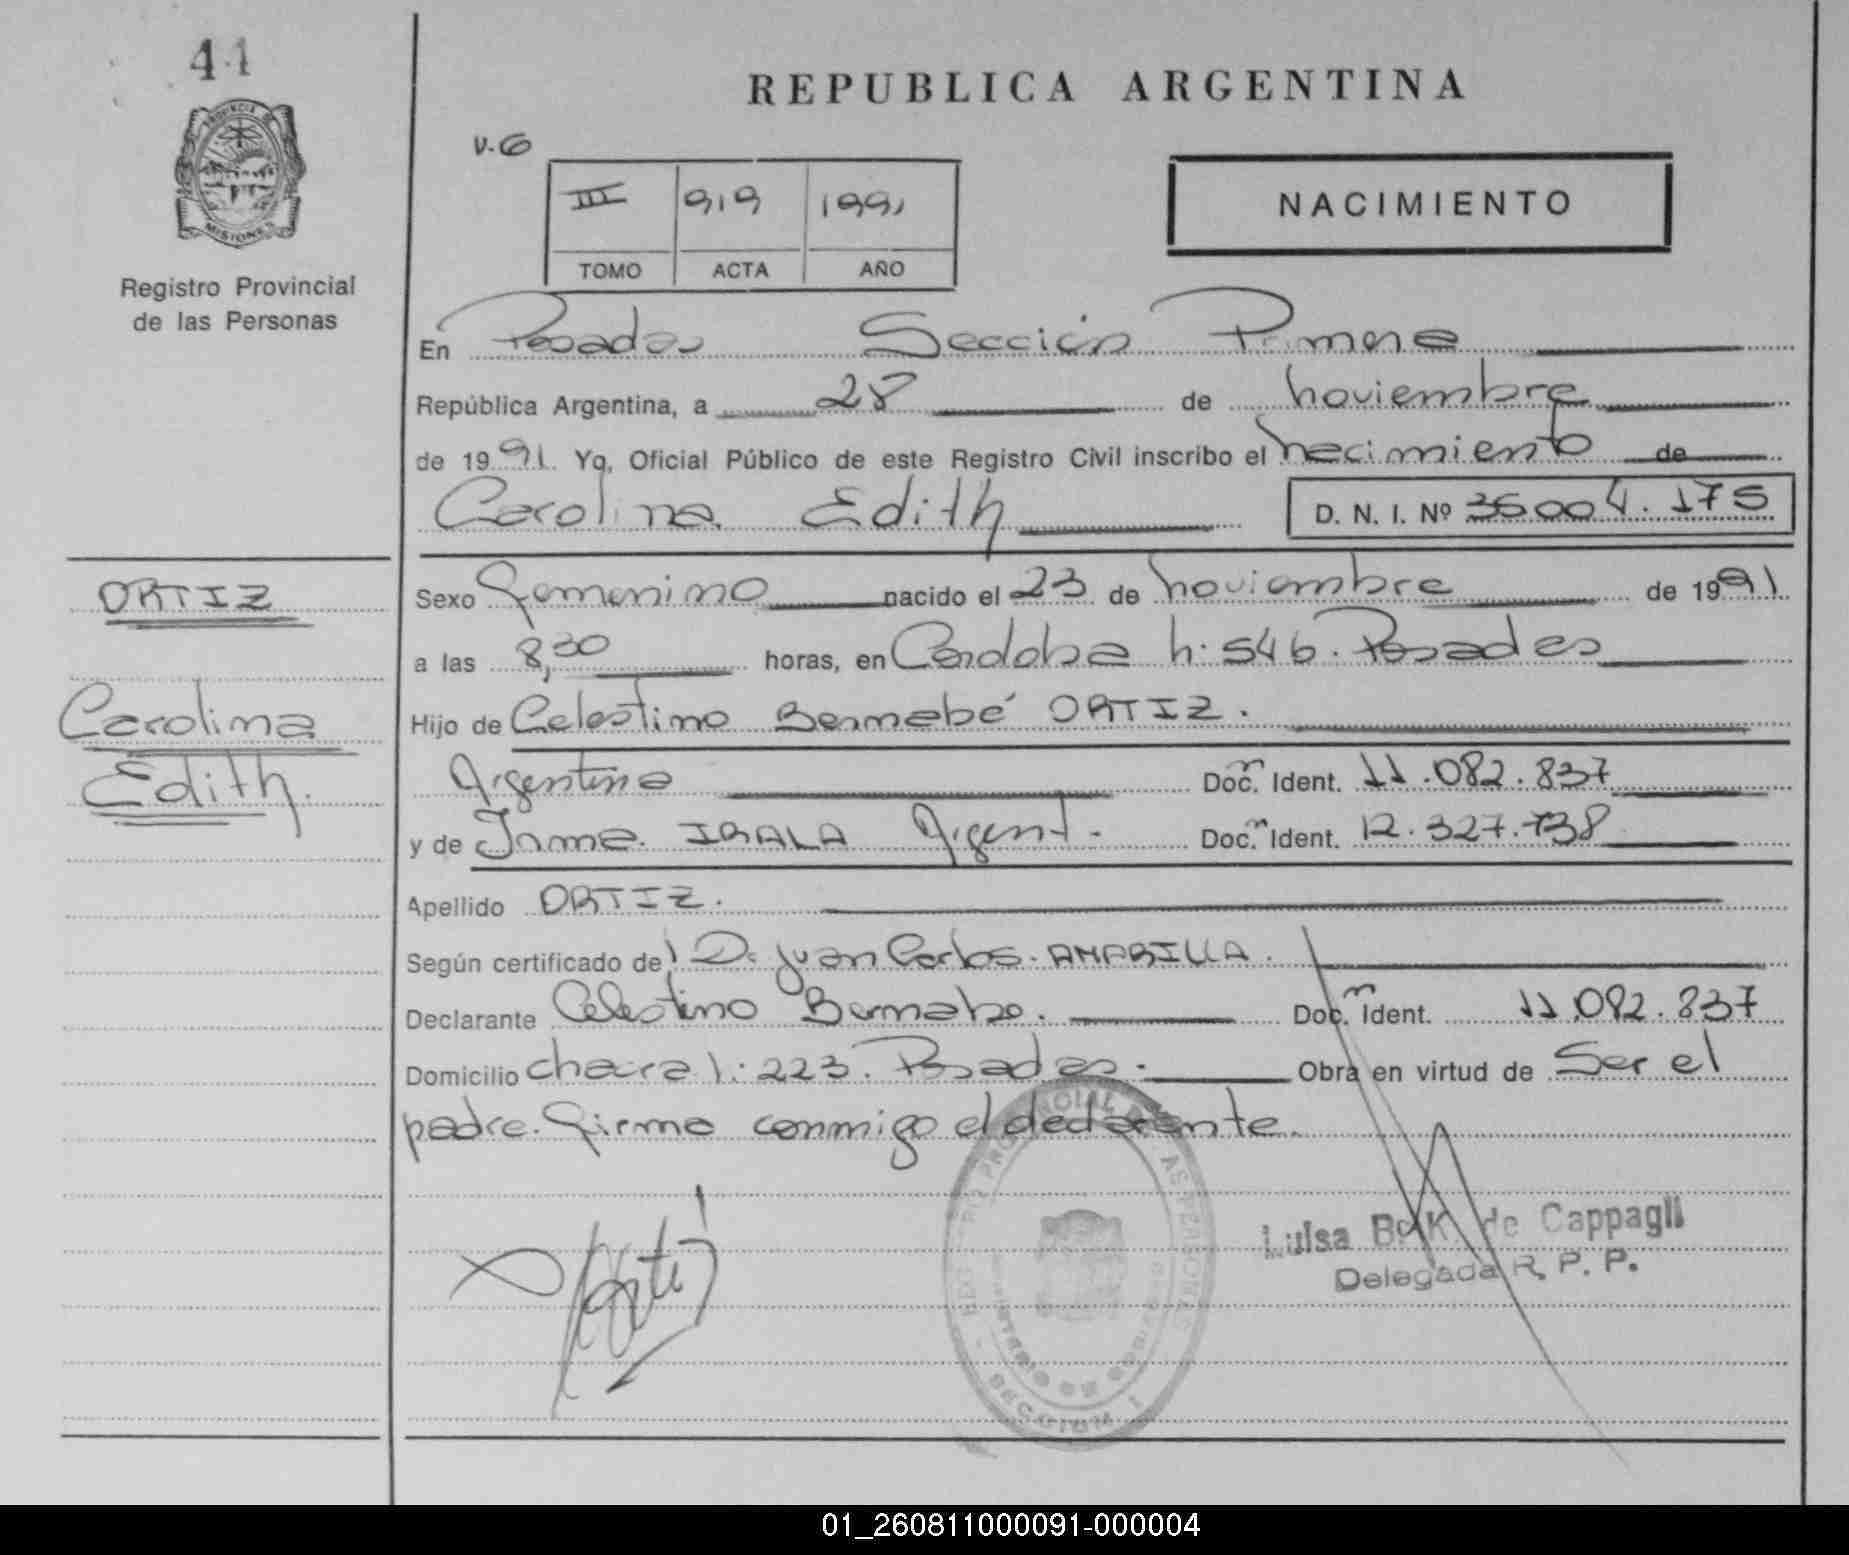 41
REPUBLICA ARGENTINA
V.6
III 919 1991
TOMO ACTA AÑO
NACIMIENTO
PROVINCIA DE
MISIONES
Registro Provincial
de las Personas
En Posadas Sección Primera
República Argentina, a 28 de noviembre
de 1991. Yo, Oficial Público de este Registro Civil inscribo el nacimiento de
Carolina Edith D. N. I. Nº 36004.175
ORTIZ
Carolina
Edith.
Sexo Femenino nacido el 23 de noviembre de 1991
a las 8,30 horas, en Córdoba n: 546. Posadas
Hijo de Celestino Bernabé ORTIZ.
Argentino Doc. Ident. 11.082.837
y de Irma IRALA Argent. Doc. Ident. 12.327.738
Apellido ORTIZ.
Según certificado del Dr Juan Carlos AMARILLA.
Declarante Celestino Bernabe. Doc. Ident. 11.082.837
Domicilio chacra 1: 223. Posadas. Obra en virtud de Ser el
padre. Firma conmigo el declarante.
Luisa B. K. de Cappagli
Delegada R. P. P.
SECCION 1
01_260811000091-000004